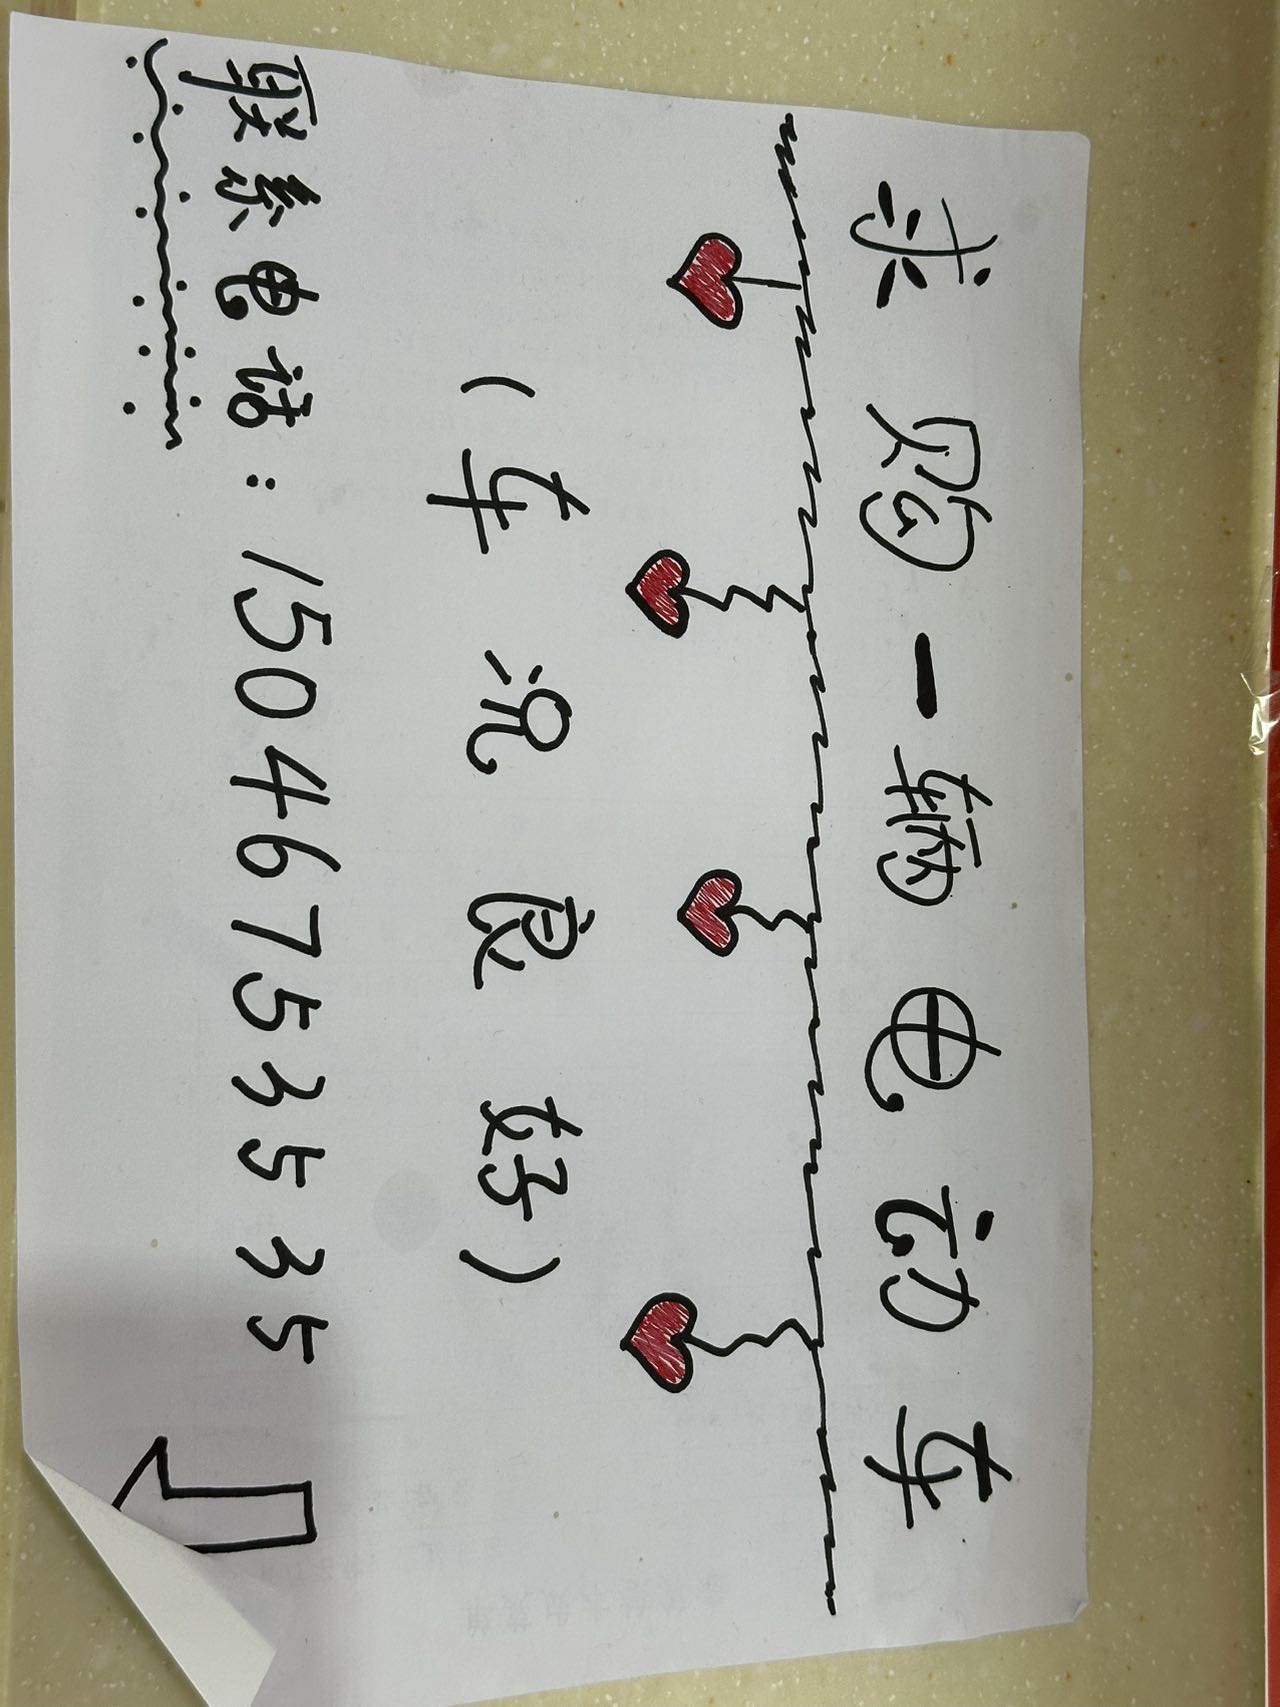 求购一辆电动车
(车况良好)
联系电话:15046753535